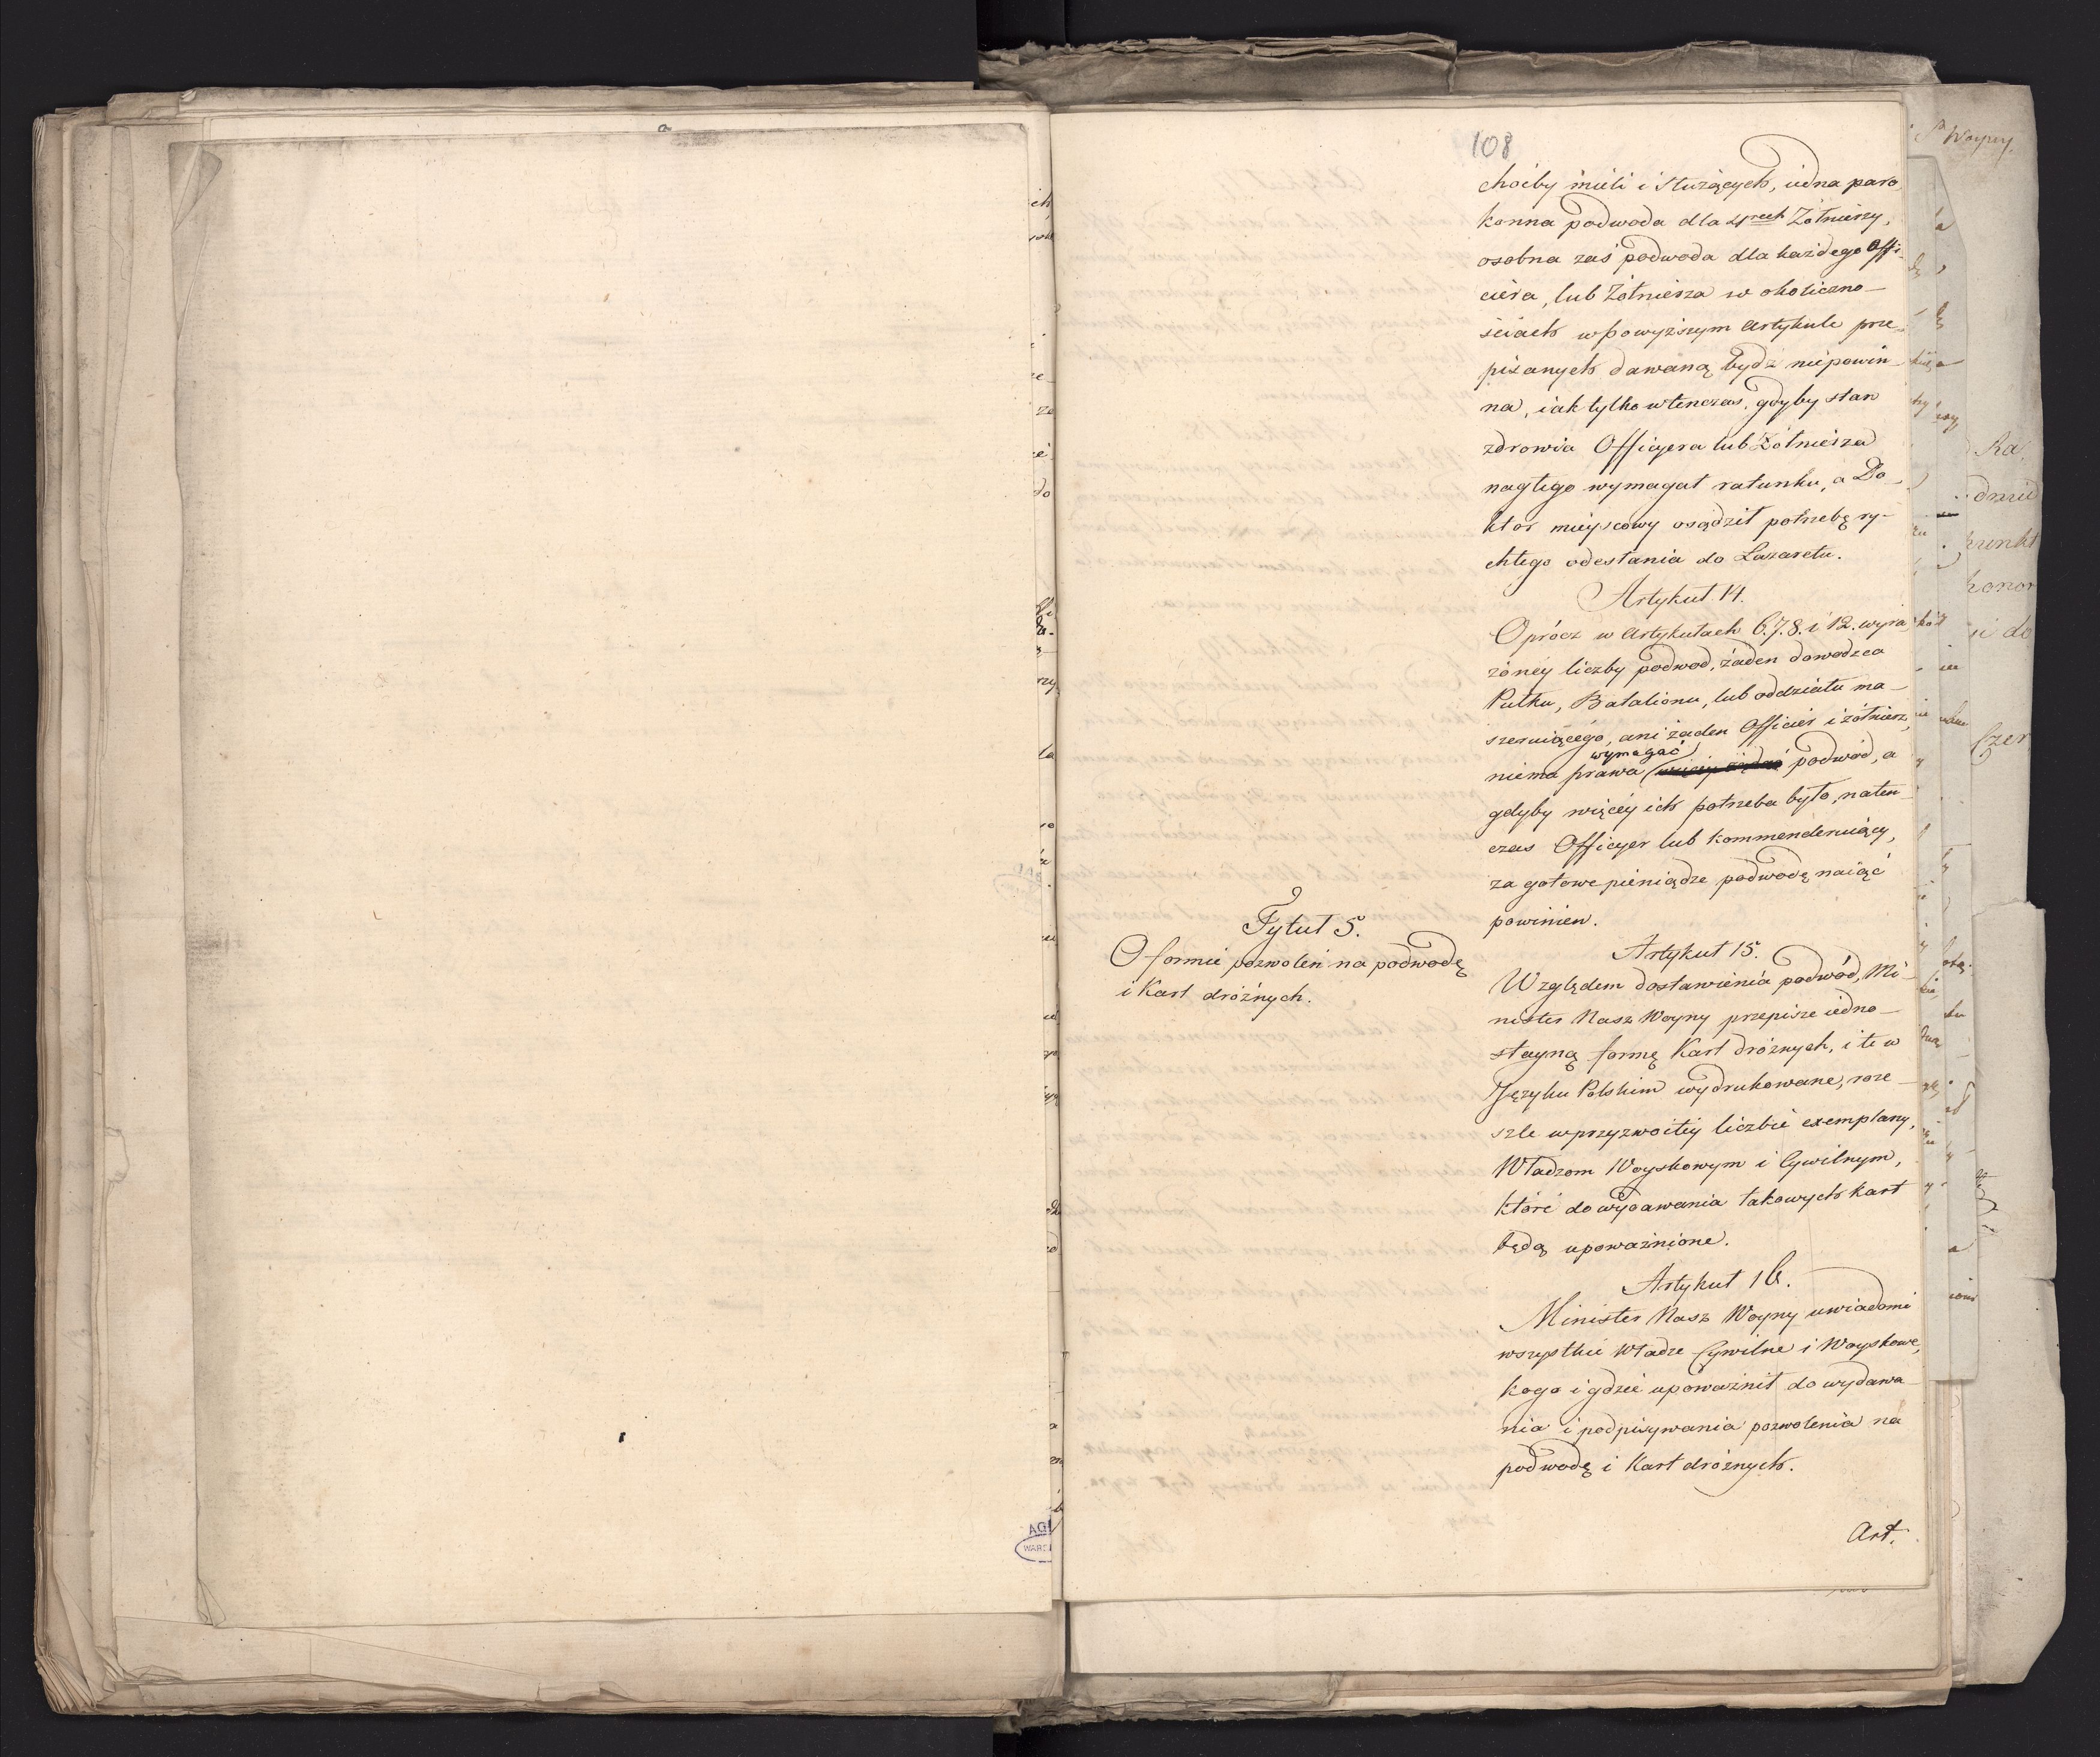 108
choćby mieli i służących, iedna paro
konna podwoda dla 4rech Żołnierzy,
osobna zaś podwoda dla każdego Offi-
ciera, lub Żołnierza w okoliczno-
ściach w powyższym Artykule prze-
pisanych dawaną bydź niepowin-
na, iak tylko wtenczas, gdyby stan
zdrowia Officyera lub Żołnierza
nagłego wymagał ratunku, a Do-
ktor mieyscowy osądził potrzebę ry-
chłego odesłania do Lazaretu.
Artykuł 14.
Oprócz w Artykułach 6.7.8. i 12. wyra-
żoney liczby podwod, żaden dowodzca
Pułku, Batalionu, lub oddziału ma-
szeruiącego, ani żaden Officier i żołnierz,
wymagać
niema prawa podwód, a
gdyby więcéy ich potrzeba było, naten-
czas Officyer lub kommenderuiący,
za gotowe pieniądze podwodę naiąć
powinien.
Tytuł 5.
O formie pozwoleń na podwodę
i Kart dróżnych.
Artykuł 15.
Względem dostawienia podwód, Mi-
nister Nasz Woyny przepisze iedno-
stayną formę Kart dróżnych, i te w
Języku Polskim wydrukowane, roze-
szle w przyzwoitey liczbie exemplarzy,
Władzom Woyskowym i Cywilnym,
które do wydawania takowych kart
będą upoważnione.
Artykuł 16.
Minister Nasz Woyny uwiadomi
wszystkie Władze Cywilne i Woyskowe,
kogo i gdzie upoważnił do wydawa-
nia i podpisywania pozwolenia na
podwodę i Kart dróżnych.
Art.